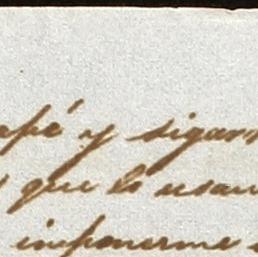 café y sigarr
que lo usaw
imponerme